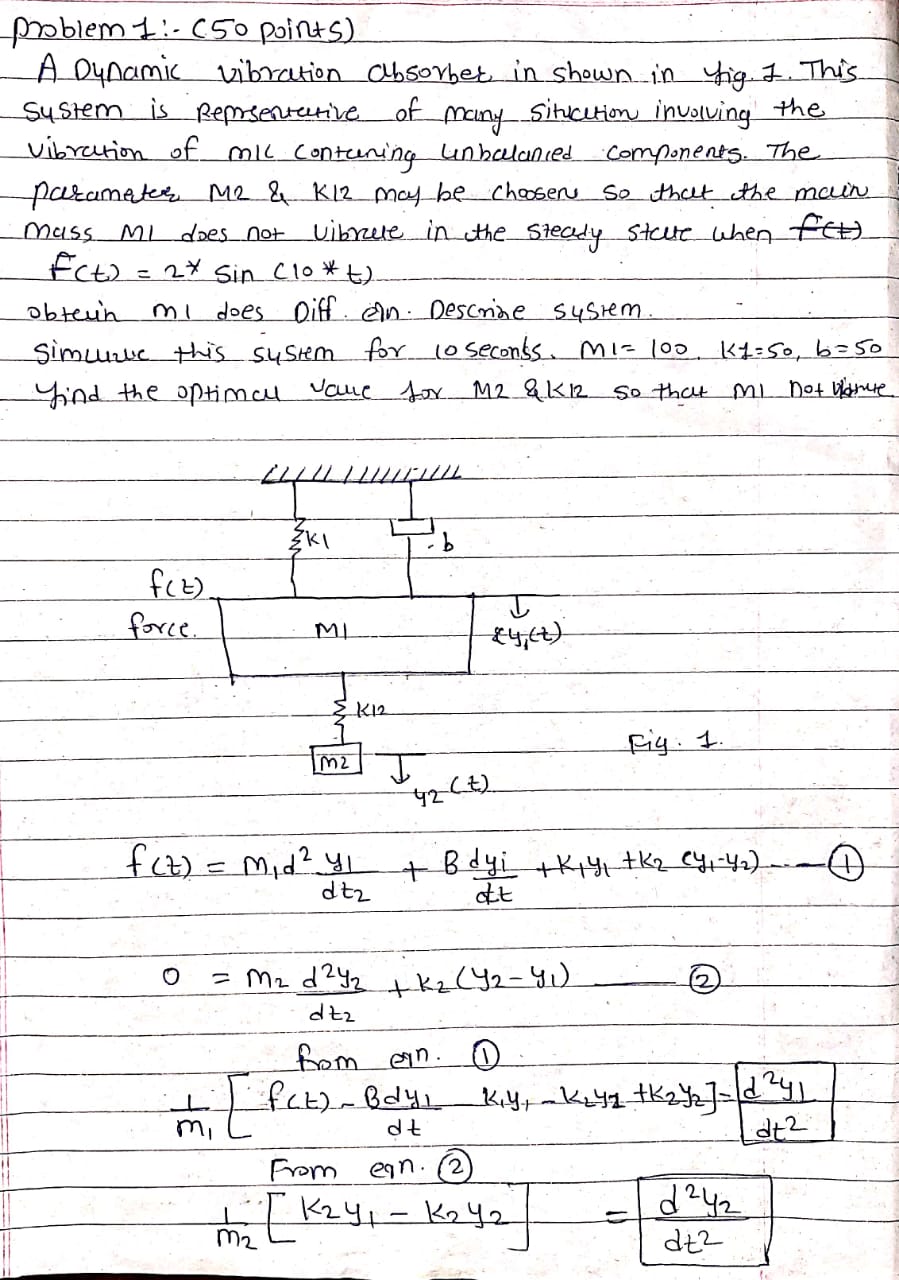 problem 1:- (50 points)
A Dynamic vibration absorber in shown in fig. 1. This
system is Reprsentative of many situcation involving the
vibration of m/c contening unbalanced components. The
parameter M2 & K12 may be choosen so that the main
mass M1 does not vibrate in the steady state when f(t)
F(t) = 2* sin (10 * t)
obtain m1 does Diff. eqn. Describe system.
Simulate this system for 10 seconds. M1= 100, K1=50, b=50
find the optimal value for M2 & K12 so that M1 not vibrate
K1
b
f(t)
force.
M1
y1(t)
K12
Fig. 1.
m2
y2(t)
f(t) = M1d² y1/dt2 + B dy1/dt + K1y1 + K2 (y1-y2) --- ①
0 = M2 d²y2/dt2 + K2 (y2-y1) — ②
from eqn. ①
1/m1 [ f(t) - Bdy1/dt K1y1 - K2y1 + K2y2 ] = d²y1/dt2
From eqn. ②
1/m2 [ K2y1 - K2y2 ] = d²y2/dt2